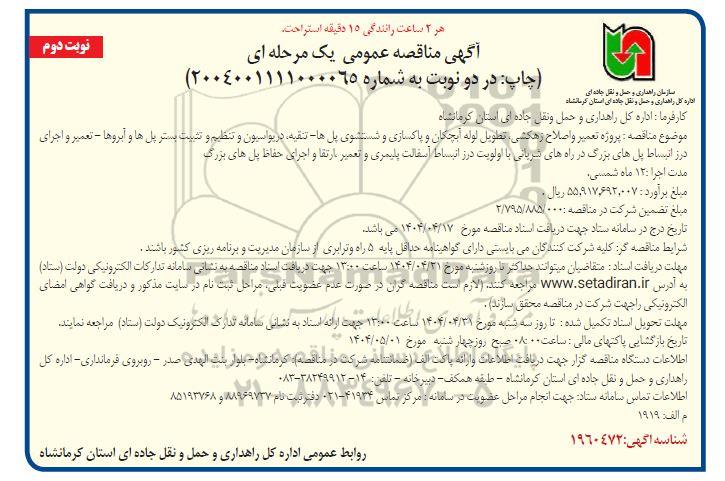 هر ۲ ساعت رانندگی ۱۵ دقیقه استراحت.
نوبت دوم
آگهی مناقصه عمومی یک مرحله ای
(چاپ: در دو نوبت به شماره ۲۰۰۴۰۰۱۱۱۱۰۰۰۰۶۵)
سازمان راهداری و حمل و نقل جاده ای
اداره کل راهداری و حمل و نقل جاده ای استان کرمانشاه
کارفرما : اداره کل راهداری و حمل ونقل جاده ای استان کرمانشاه
موضوع مناقصه : پروژه تعمیر واصلاح زهکشی، تطویل لوله آبچکان و پاکسازی و شستشوی پل ها- تنقیه، دریواسیون و تنظیم و تثبیت بستر پل ها و آبروها - تعمیر و اجرای
درز انبساط پل های بزرگ در راه های شریانی با اولویت درز انبساط آسفالت پلیمری و تعمیر ،ارتقا و اجرای حفاظ پل های بزرگ
مدت اجرا :۱۲ ماه شمسی.
مبلغ برآورد : ۵۵,۹۱۷,۶۹۲,۰۰۷ ریال .
مبلغ تضمین شرکت در مناقصه :۲/۷۹۵/۸۸۵/۰۰۰
تاریخ درج در سامانه ستاد جهت دریافت اسناد مناقصه مورخ ۱۴۰۴/۰۴/۱۷ می باشد.
شرایط مناقصه گر: کلیه شرکت کنندگان می بایستی دارای گواهینامه حداقل پایه ۵ راه وترابری از سازمان مدیریت و برنامه ریزی کشور باشند .
مهلت دریافت اسناد : متقاضیان میتوانند حداکثر تا روزشنبه مورخ ۱۴۰۴/۰۴/۲۱ ساعت ۱۳:۰۰ جهت دریافت اسناد مناقصه به نشانی سامانه تدارکات الکترونیکی دولت (ستاد)
به آدرس www.setadiran.ir مراجعه کنند. (لازم است مناقصه گران در صورت عدم عضویت قبلی، مراحل ثبت نام در سایت مذکور و دریافت گواهی امضای
الکترونیکی راجهت شرکت در مناقصه محقق سازند).
مهلت تحویل اسناد تکمیل شده : تا روز سه شنبه مورخ ۱۴۰۴/۰۴/۳۱ ساعت ۱۳:۰۰ جهت ارائه اسناد به نشانی سامانه تدارک الکترونیک دولت (ستاد) مراجعه نمایند.
تاریخ بازگشایی پاکتهای مالی : ساعت۰۸:۰۰ صبح روزچهار شنبه مورخ ۱۴۰۴/۰۵/۰۱
اطلاعات دستگاه مناقصه گزار جهت دریافت اطلاعات وارائه پاکت الف (ضمانتنامه شرکت در مناقصه): کرمانشاه- بلوار بنت الهدی صدر - روبروی فرمانداری- اداره کل
راهداری و حمل و نقل جاده ای استان کرمانشاه - طبقه همکف- دبیرخانه - تلفن: ۱۴-۳۸۲۴۹۹۱۲-۰۸۳
اطلاعات تماس سامانه ستاد: جهت انجام مراحل عضویت در سامانه : مرکز تماس ۴۱۹۳۴-۰۲۱ دفترثبت نام ۸۸۹۶۹۷۳۷ و ۸۵۱۹۳۷۶۸
م الف: ۱۹۱۹
شناسه آگهی:۱۹۶۰۴۷۲
روابط عمومی اداره کل راهداری و حمل و نقل جاده ای استان کرمانشاه